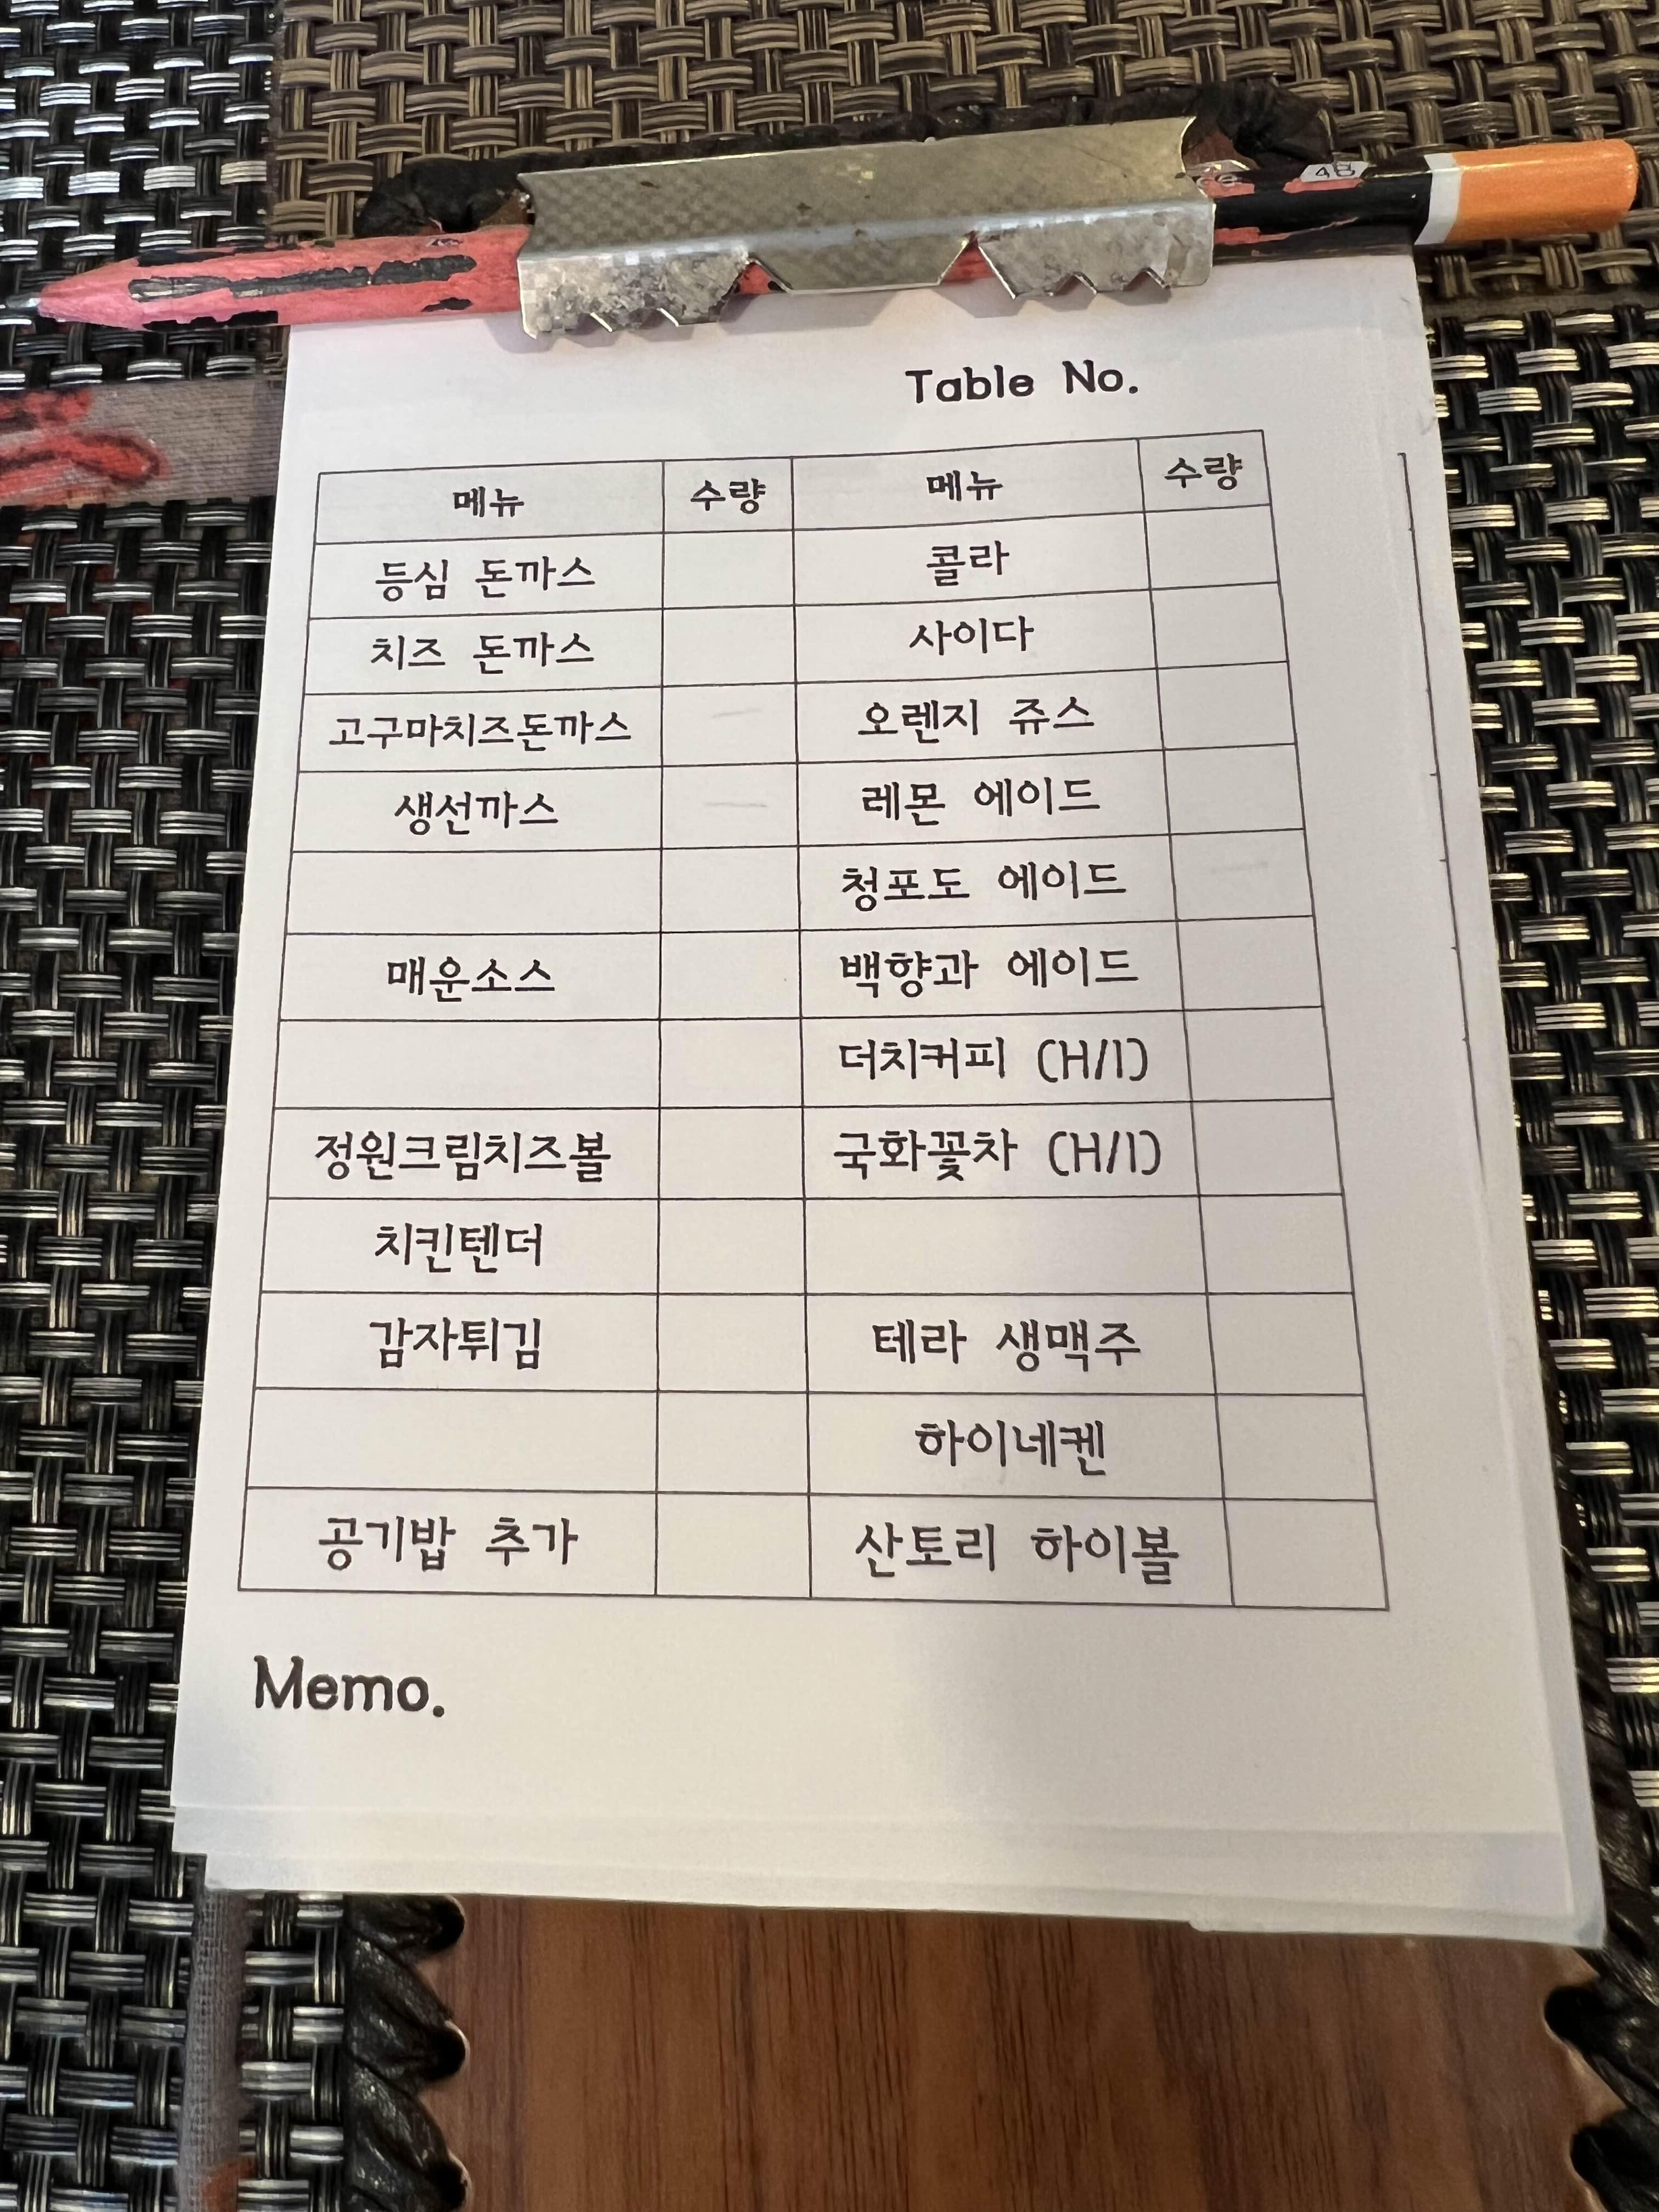 4B
Table No.
메뉴 수량 메뉴 수량
등심 돈까스 콜라
치즈 돈까스 사이다
고구마치즈돈까스 오렌지 쥬스
생선까스 레몬 에이드
청포도 에이드
매운소스 백향과 에이드
더치커피 (H/I)
정원크림치즈볼 국화꽃차 (H/I)
치킨텐더
감자튀김 테라 생맥주
하이네켄
공기밥 추가 산토리 하이볼
Memo.